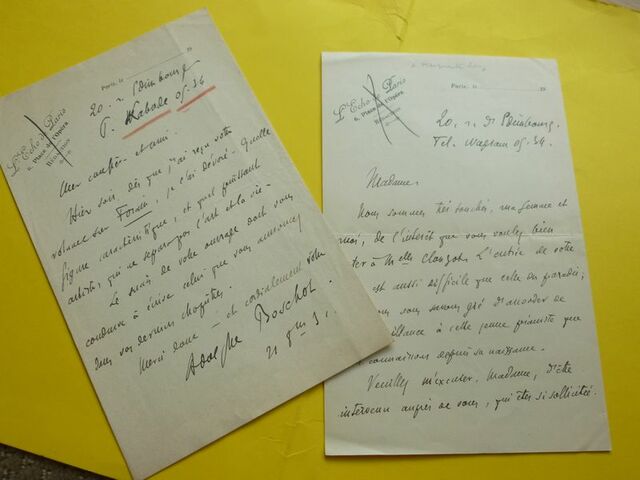 Paris, le 19
L'Echo de Paris
6, Place de l'Opéra
Rédaction
20. r. d'Edimbourg
T. Labade 05.34
Mon cher confrère et ami.
Hier soir, dès que j'ai reçu votre
volume sur Forain, je l'ai dévoré. Quelle
figure caractéristique, et quel puissant
artiste, qui ne sépare pas l'art et la vie.
Le succès de votre ouvrage doit vous
conduire à écrire celui que vous annoncez
dans vos derniers chapitres.
Merci donc — et cordialement vôtre
Adolphe Boschot
21 31
Paris, le 19
L'Echo de Paris
6, Place de l'Opéra
Rédaction
20. r. d'Edimbourg.
Tel. Wagram 05.34.
Madame,
Nous sommes très touchés, ma femme et
moi, de l'intérêt que vous voulez bien
ter à Melle Clouzot. L'entrée de votre
est aussi difficile que celle du paradis;
ous vous savons gré d'accorder
eillance à cette jeune pianiste que
connaissons depuis sa naissance.
Veuillez m'excuser, Madame, d'être
intervenu auprès de vous, qui êtes si sollicitée.